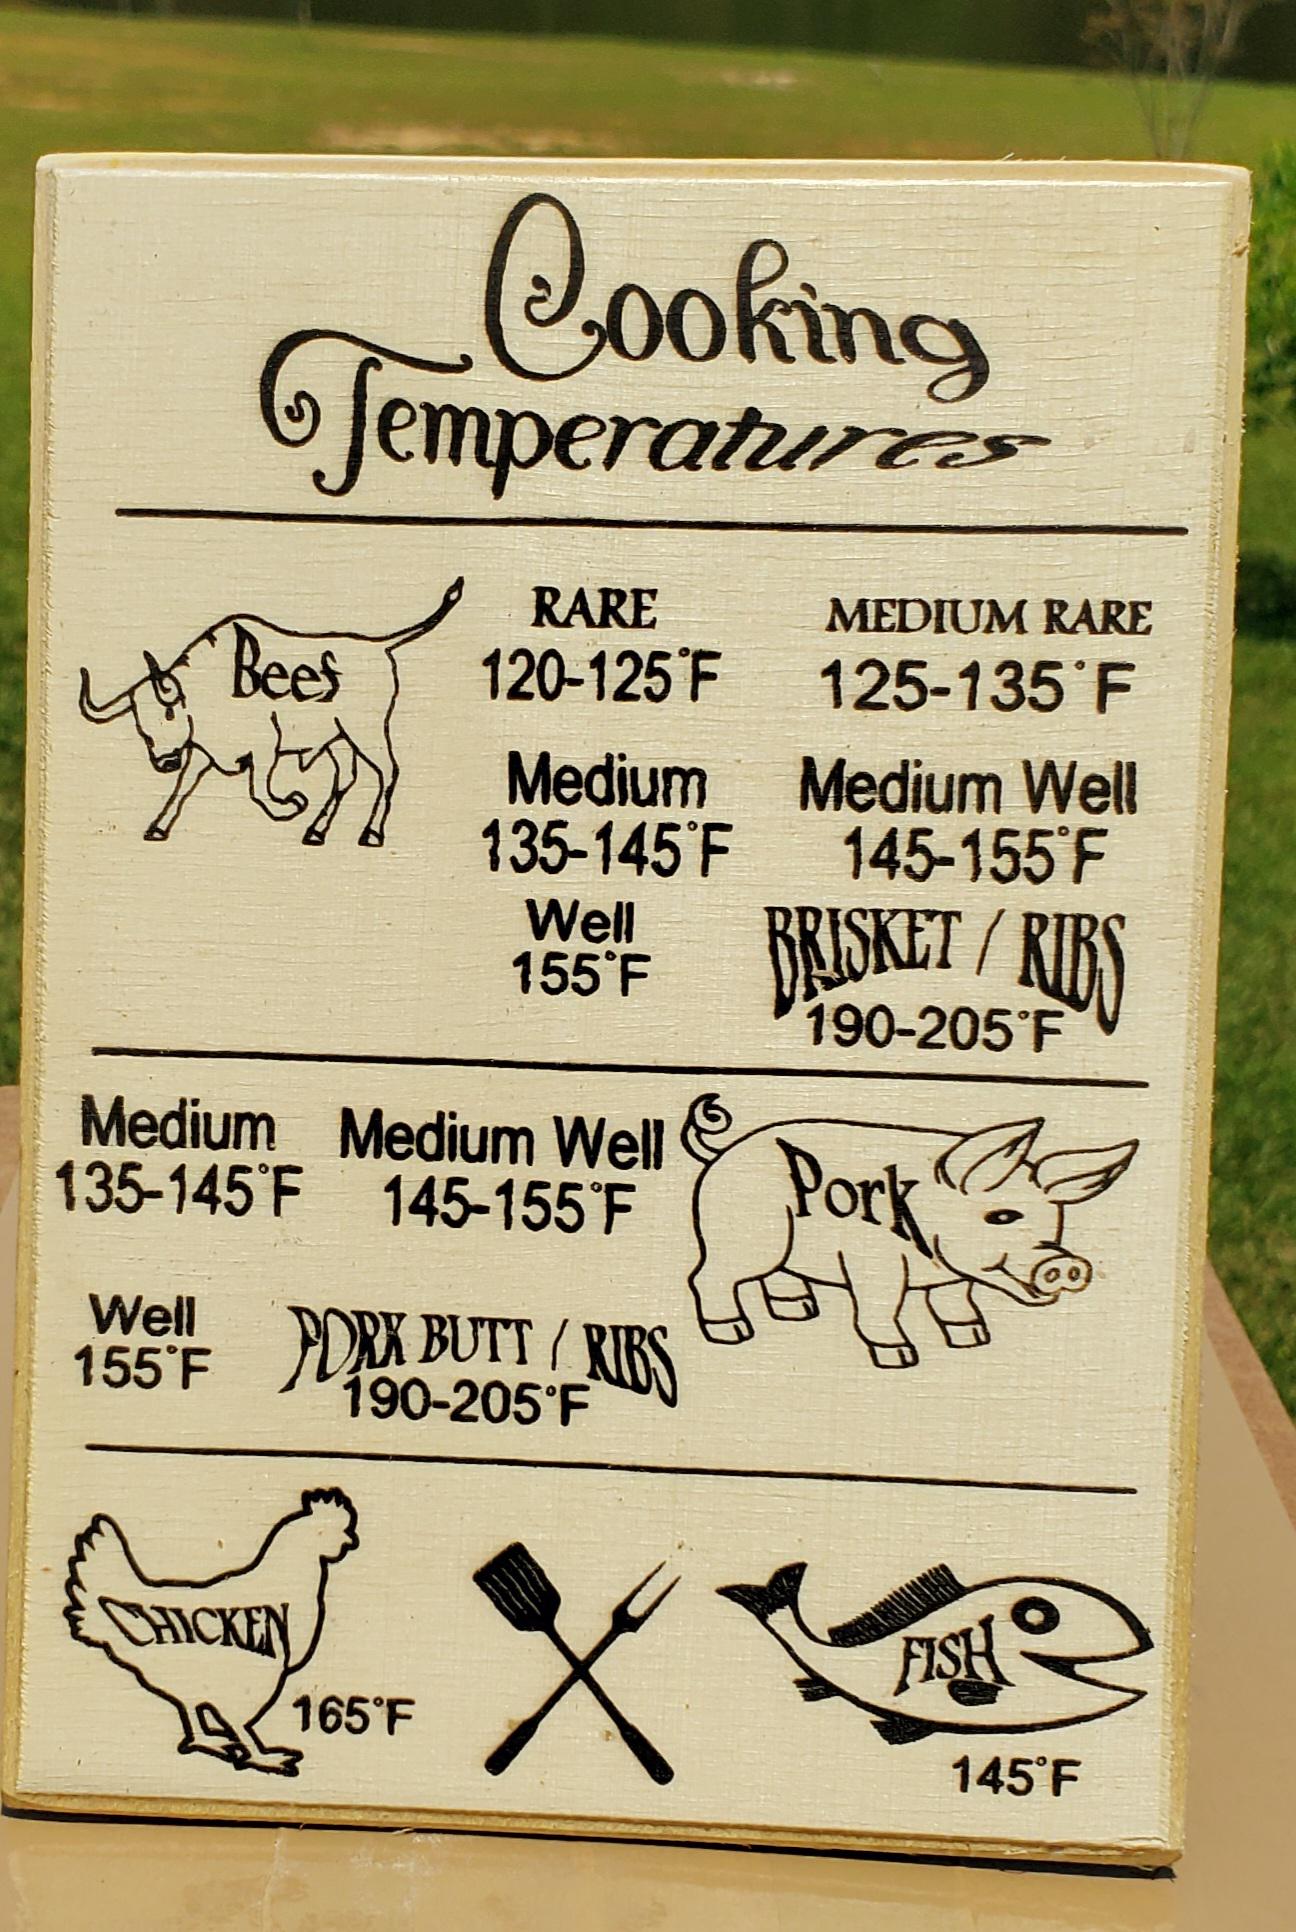 Cooking
Temperatures
Beef
RARE
120-125°F
MEDIUM RARE
125-135°F
Medium
135-145°F
Medium Well
145-155°F
Well
155°F
BRISKET / RIBS
190-205°F
Medium
135-145°F
Medium Well
145-155°F
Pork
Well
155°F
PORK BUTT / RIBS
190-205°F
CHICKEN
165°F
FISH
145°F